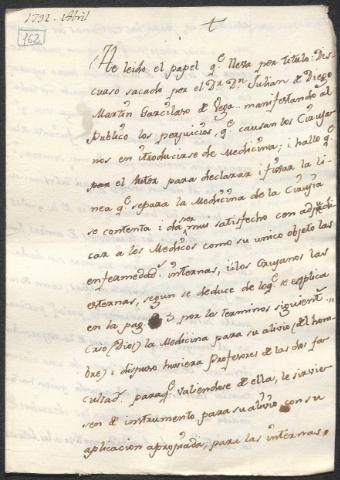 1792. Abril
162
He leido el papel q.e lleva por titulo: Dis-
curso sacado por el D.r D.n Julian de Diego
Martin Garcilaso de Vega, manifestando al
Publico los perjuicios, q.e causan los Ciruja-
nos en introducirse de Medicina; i hallo q.e
para el Autor para declarar i fixar la li-
nea q.e separa la Medicina de la Cirugia
se contenta i da mui satisfecho con adjudi-
car a los Medicos como su unico objeto las
enfermedad.s internas, i a los Cirujanos las
externas, segun se deduce de loq.e se explica
en la pag 3 por los terminos siguient.s
Crio (Dios) la Medicina para su alivio (del hom-
bre) i dispuso huviera Profesores de las dos fa-
cultad.s paraq.e valiendose de ella, le sirvies-
sen de instrumento para su alivio con su
aplicacion apropriada; para las internas,